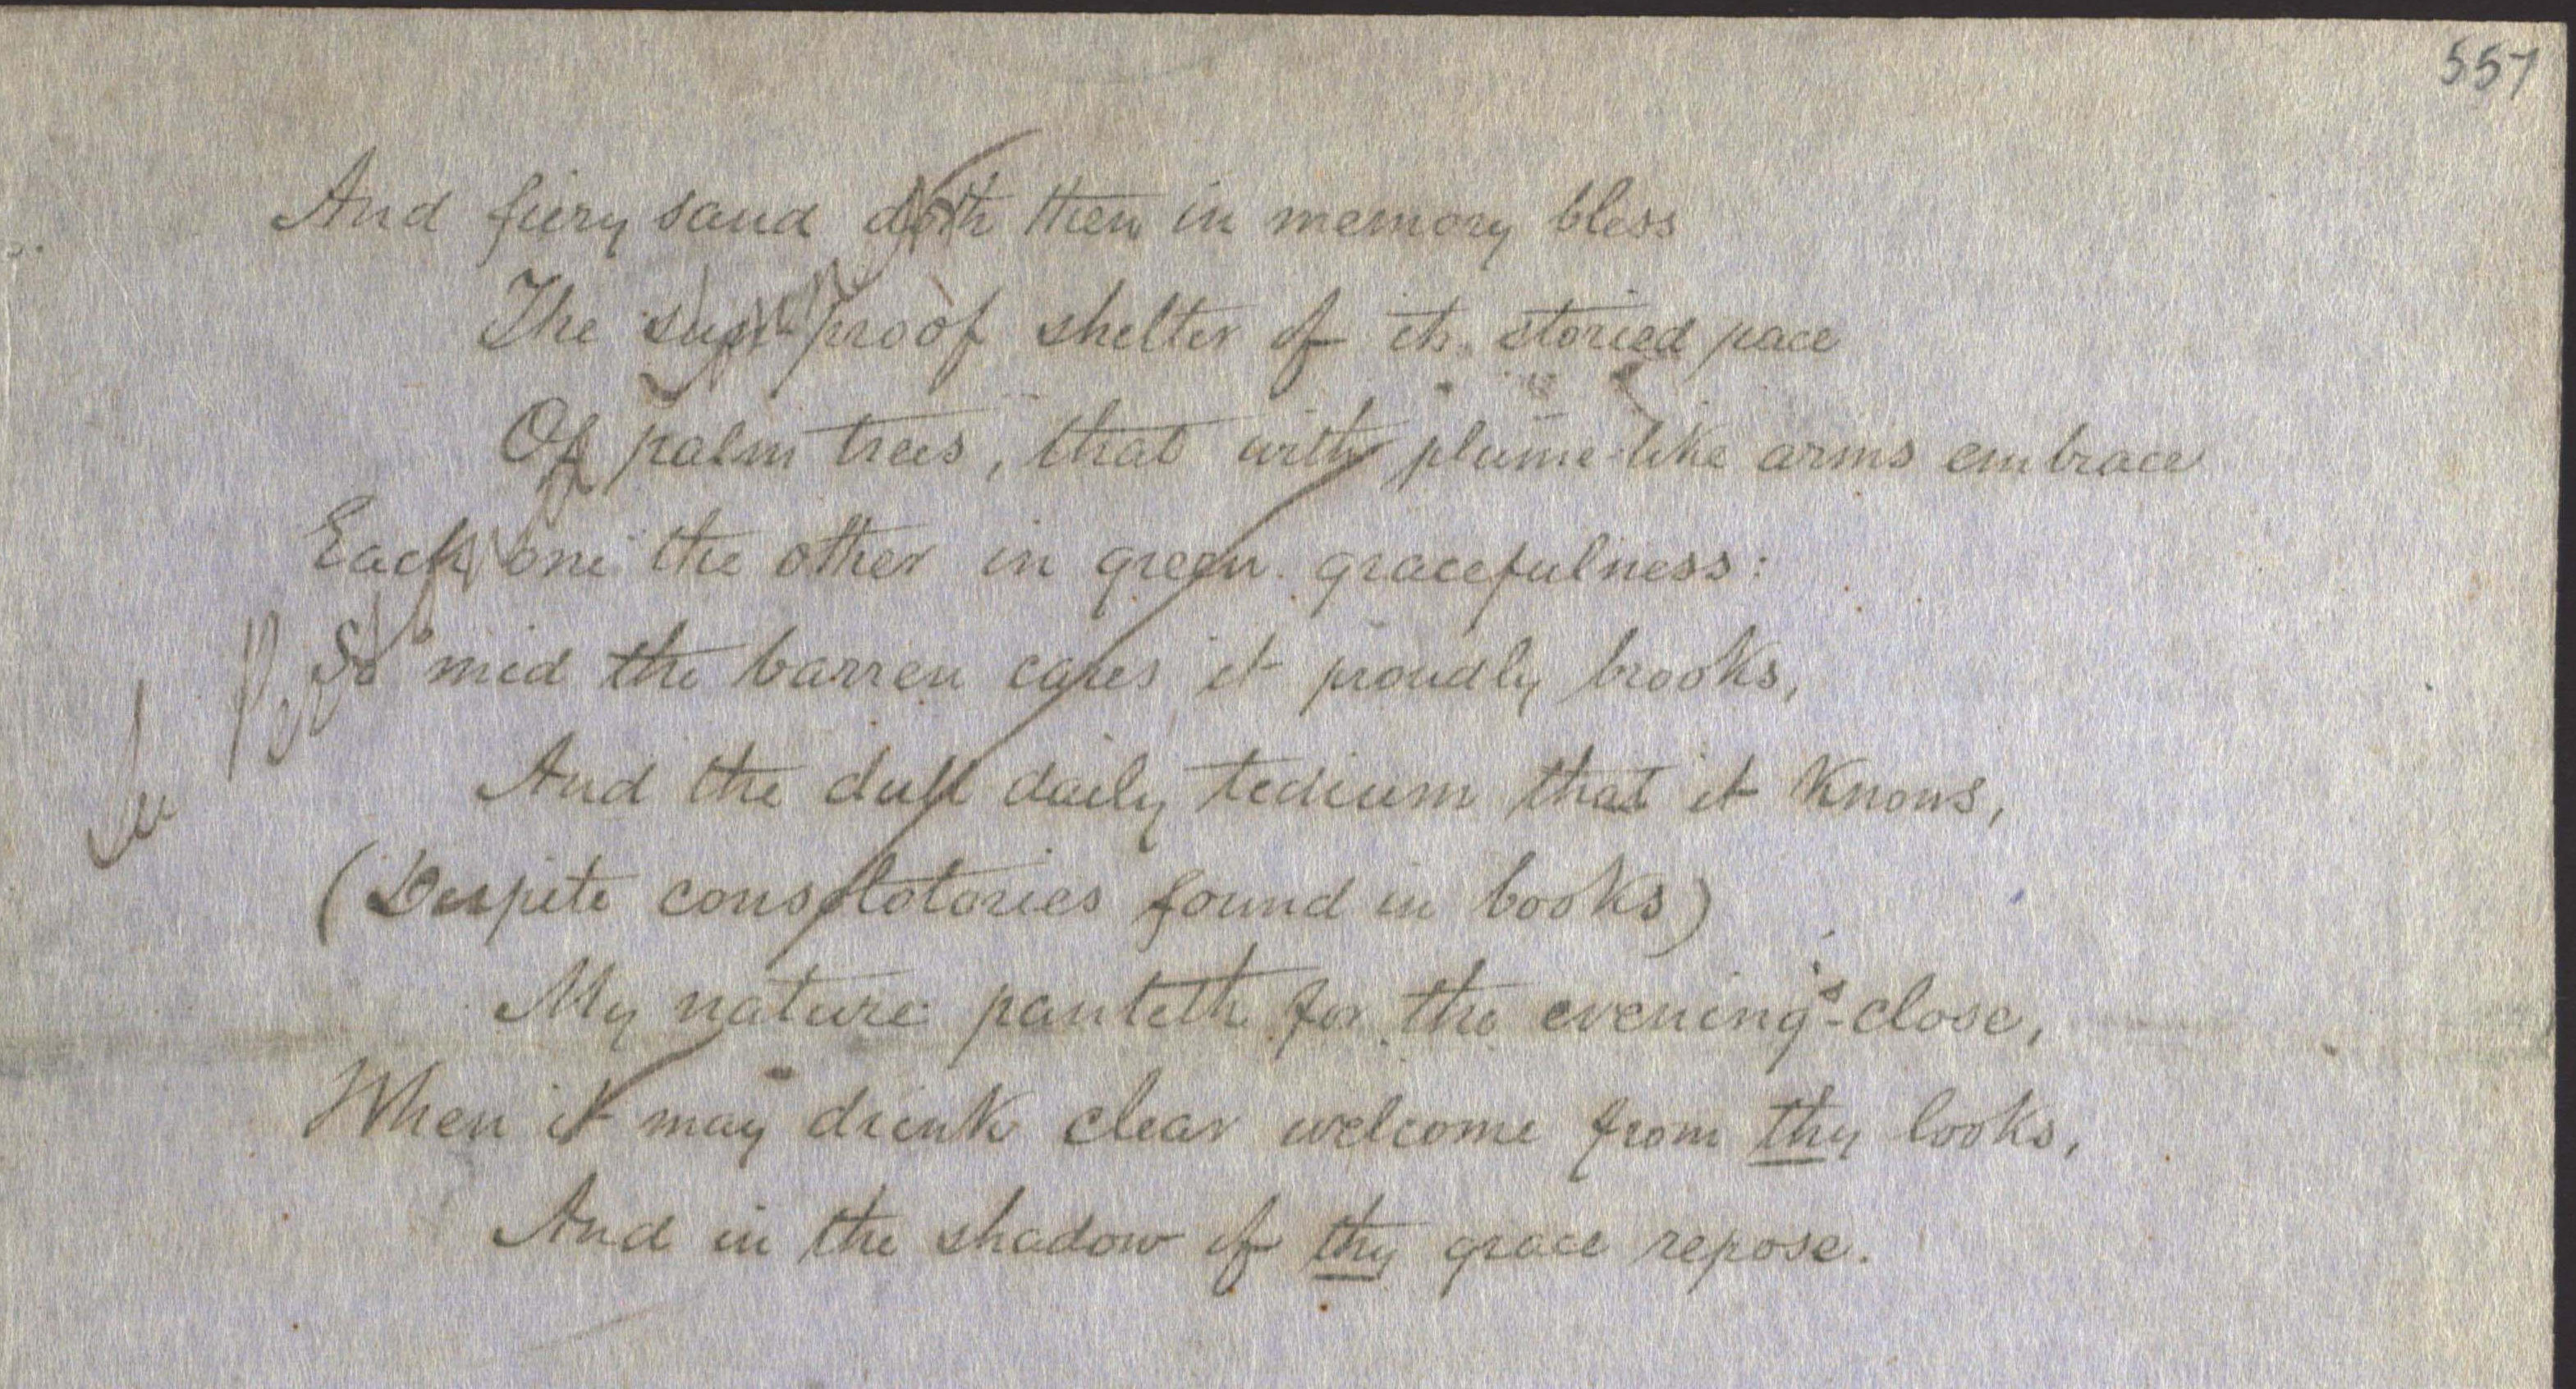 557
And fiery sand doth then in memory bless
The sun-proof shelter of its storied pace
Of palm trees, that with plume-like arms embrace
Each one the other in green gracefulness:
So mid the barren cares it proudly brooks,
And the dull daily tedium that it knows,
(Despite consolatories found in books)
My nature panteth for the evening's-close,
When it may drink clear welcome from thy looks,
And in the shadow of thy grace repose.
See